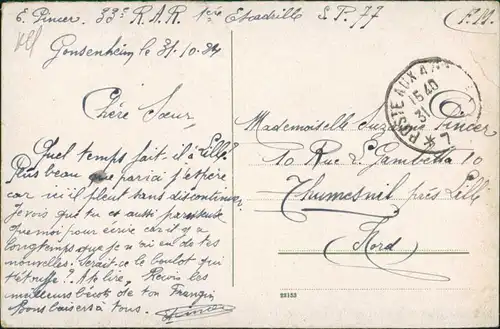 E. Pincer, 33e R.A.R. 1ère Escadrille S.P. 77
F.M.
Gonsenheim le 31.10.
Chère Sœur
Quel temps fait-il à Lille
Plus beau que par ici j'espère
car ici il pleut sans discontinuer
Je vois que tu es aussi
que moi pour écrire car il y a
longtemps que je n'ai eu de tes
nouvelles. Serait-ce le boulot qui
t'étouffe?. A te lire, Reçois les
meilleurs bécots de ton Frangin
Bons baisers à tous. Pincer
POSTE AUX A
15 40
31
Mademoiselle Suzanne Pincer
10 Rue L. Gambetta 10
Thumesnil près Lille
Nord